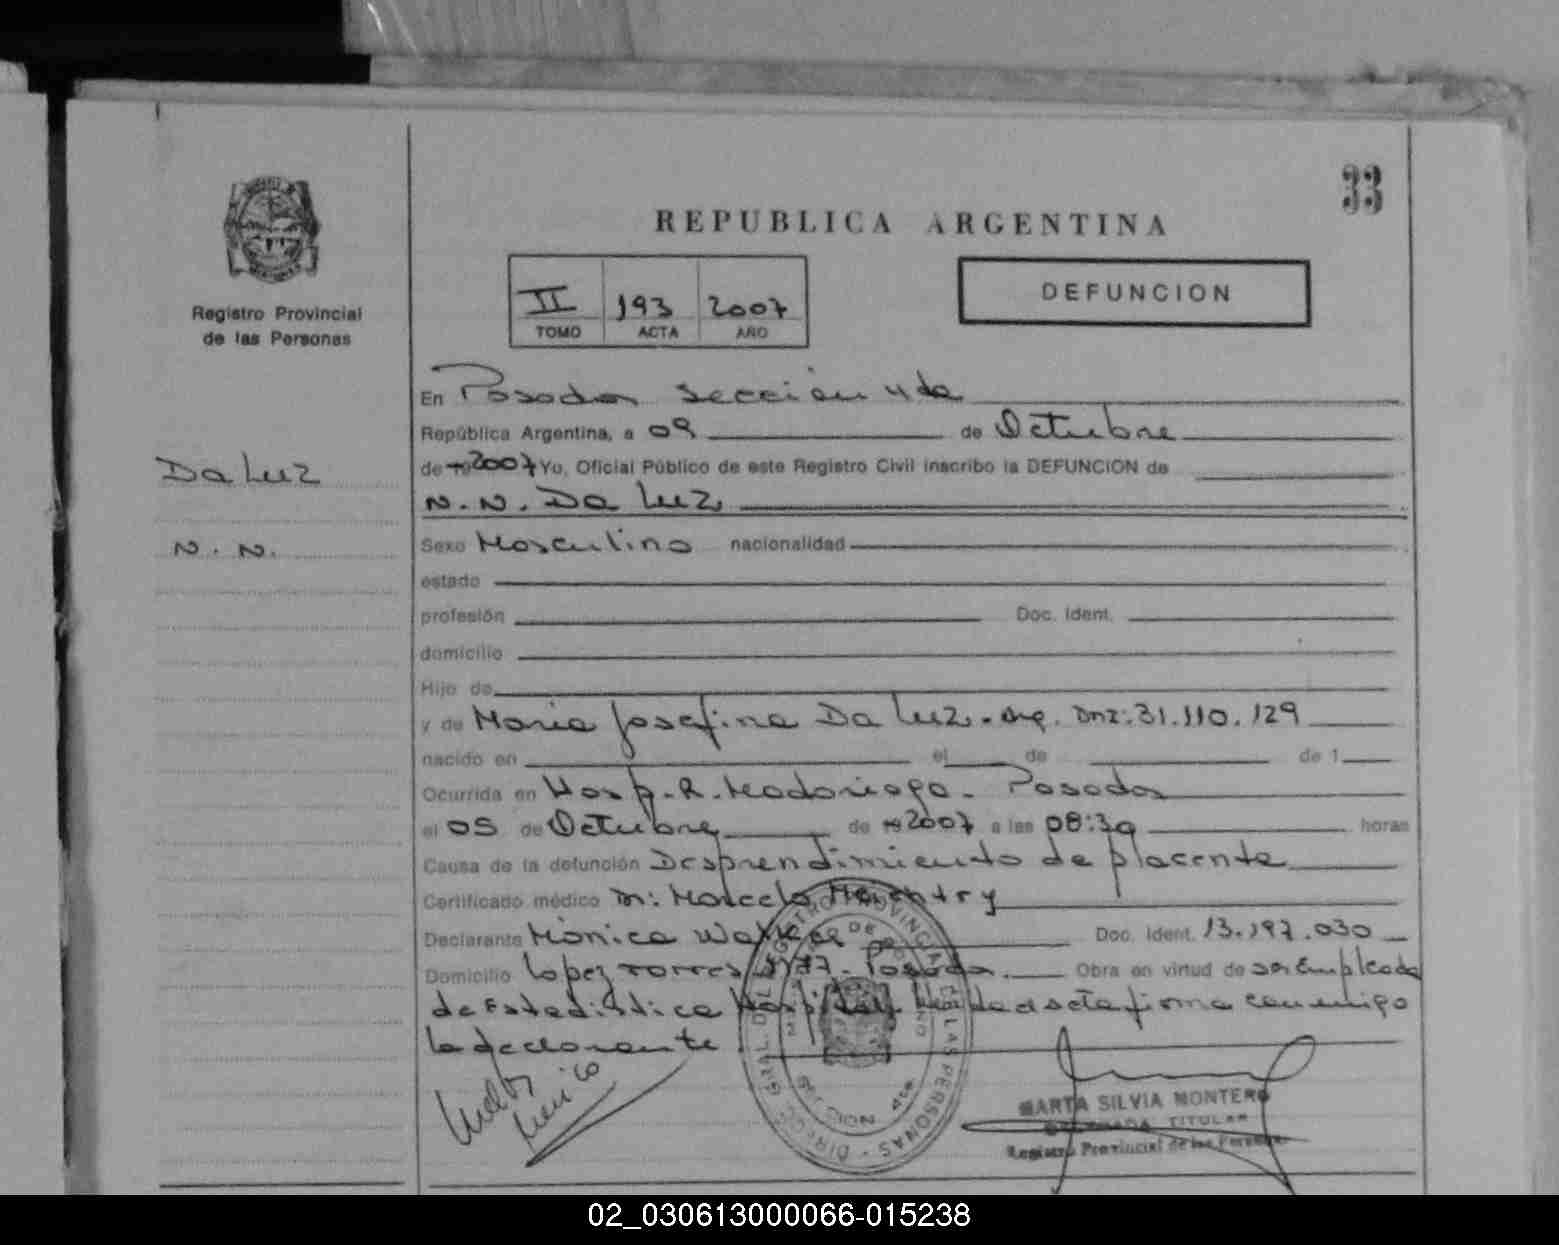 33
REPUBLICA ARGENTINA
Registro Provincial
de las Personas
II 193 2007
TOMO ACTA AÑO
DEFUNCION
En Posadas sección 4ta
República Argentina, a 09 de Octubre
de 19 2007 Yo, Oficial Público de este Registro Civil inscribo la DEFUNCION de
Da Luz
N. N. Da Luz
N. N.
Sexo Masculino nacionalidad
estado
profesión Doc. Ident.
domicilio
Hijo de
y de María Josefina Da Luz - Arg. DNI: 31.110.129
nacido en el de de 1
Ocurrida en Hosp. R. Madariaga - Posadas
el 05 de Octubre de 19 2007 a las 08:30 horas
Causa de la defunción Desprendimiento de placenta
Certificado médico Dr: Marcelo
Declarante Mónica Doc. Ident. 13.197.030
Domicilio Lopez Torres - Posadas. Obra en virtud de ser Empleada
de Estadística Hospital. Leída acta firma conmigo
la declarante
MARTA SILVIA MONTERO
DELEGADA TITULAR
Registro Provincial de las Personas
02_030613000066-015238